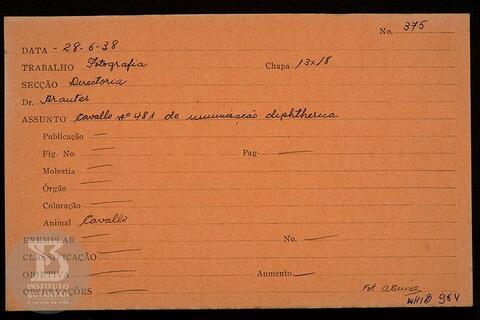 No. 375
DATA - 28-6-38
TRABALHO Fotografia Chapa 13x18
SECÇÃO Directoria
Dr. Arantes
ASSUNTO Cavallo Nº 481 de imunisacão diphtherica
Publicação —
Fig. No. — Pag. —
Molestia —
Órgão —
Coloração —
Animal Cavallo
EXEMPLAR — No. —
CLASSIFICAÇÃO —
OBJETIVA — Aumento —
OBSERVAÇÕES —
Fot.
984
INSTITUTO
BUTANTAN
A serviço da vida